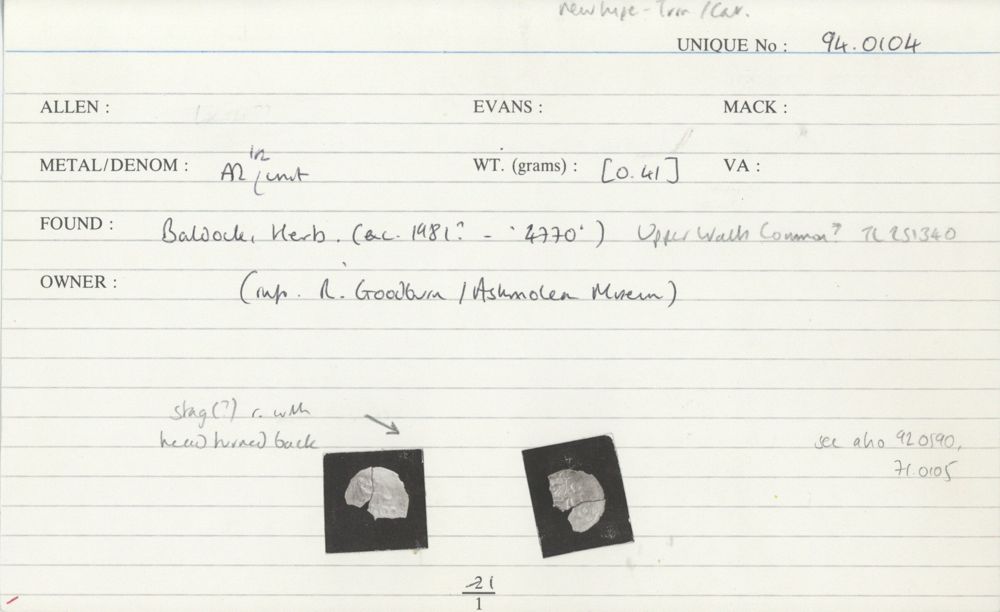 new type - Trin / Cat.
UNIQUE No : 94.0104
ALLEN : EVANS : MACK :
METAL/DENOM : AR 1/2 unit WT. (grams) : [0.41] VA :
FOUND : Baldock, Herts. (ac. 1981? - '4770') Upper Walls Common? TL 251340
OWNER : (info. R. Goodburn / Ashmolean Museum)
stag(?) r. with
head turned back
see also 92.0590,
71.0105
21
1